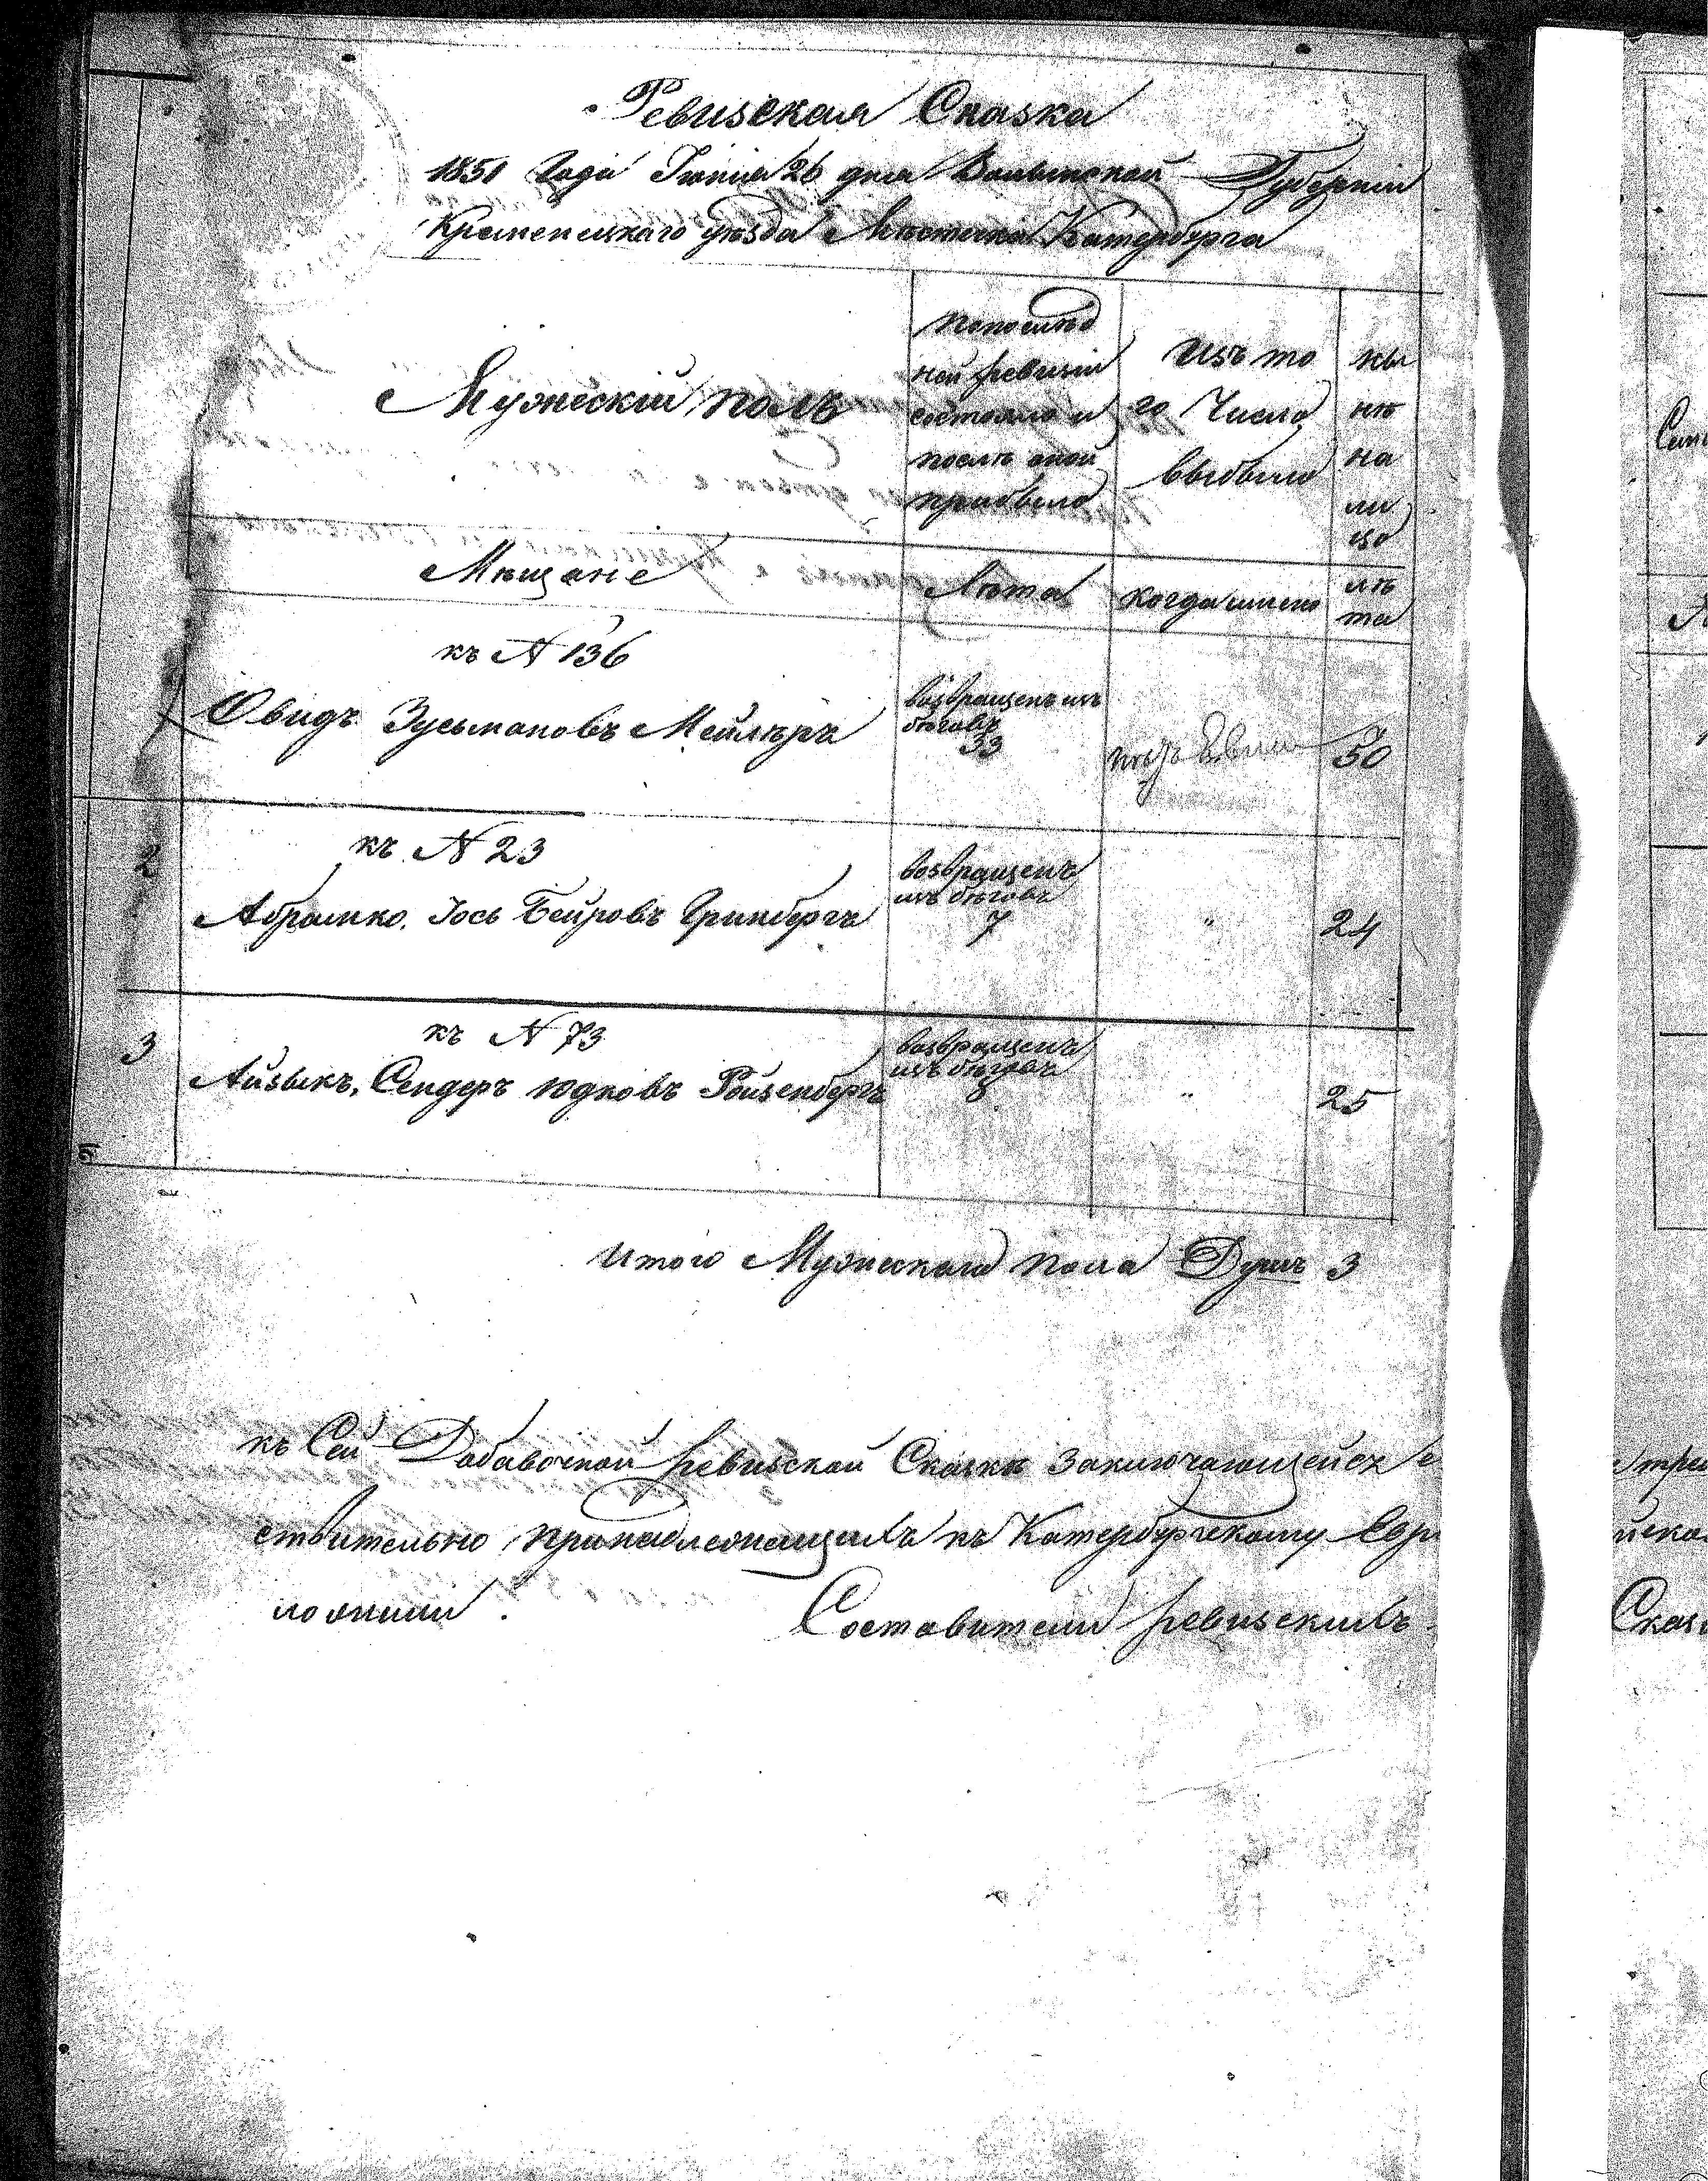 Ревизская Сказка
1851 Года Іюния 26 дня Волынской Губерніи
Кременецкаго уѣзда Мѣстечка Катербурга
Мужескій полъ
попослѣд
ней ревизіи
состояло и
послѣ оной
прибыло
Изъ то
го Числа
выбыло
ны
нѣ
на
ли
цо
Мѣщане
Лѣта
когда имено
лѣ
та
къ N 136
Овидъ Зусьмановъ Мейлеръ
возвращенъ изъ
бѣговъ
33
50
2
къ N 23
Абрамко, Іось Бейровъ Гринбергъ
возвращенъ
изъ бѣговъ
7
"
24
3
къ N 73
Айзыкъ, Сендеръ Юдковъ Ройзенбергъ
возвращенъ
изъ бѣговъ
8
"
25
Итого Мужескаго пола Душъ 3
къ Сей Добавочной ревизской Сказки Заключающейся
ствительно принадлежащихъ къ Катербургскому Евр
ложили.
Составители ревизскихъ